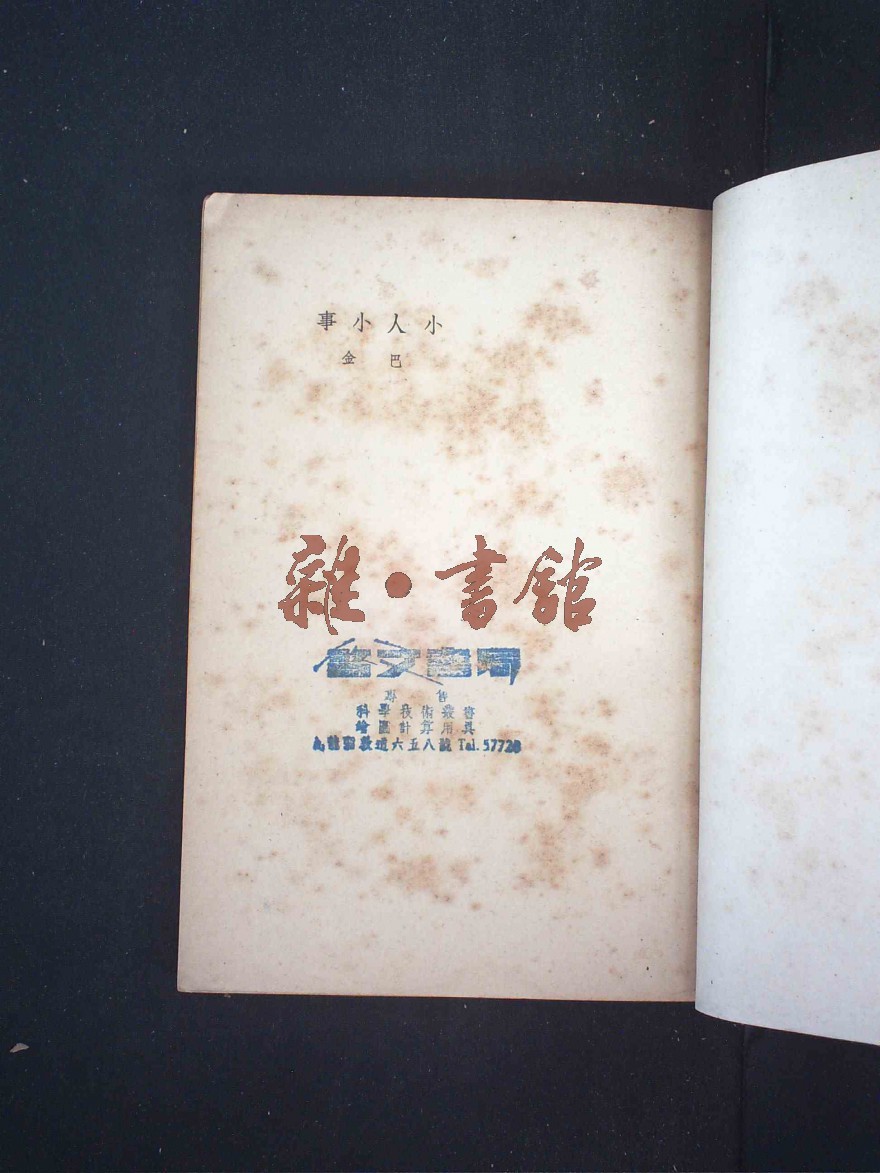 小人小事
巴金
雜·書館
文書局
專售
科學技術叢書
繪圖計算用具
九龍彌敦道六五八號 Tel. 57728